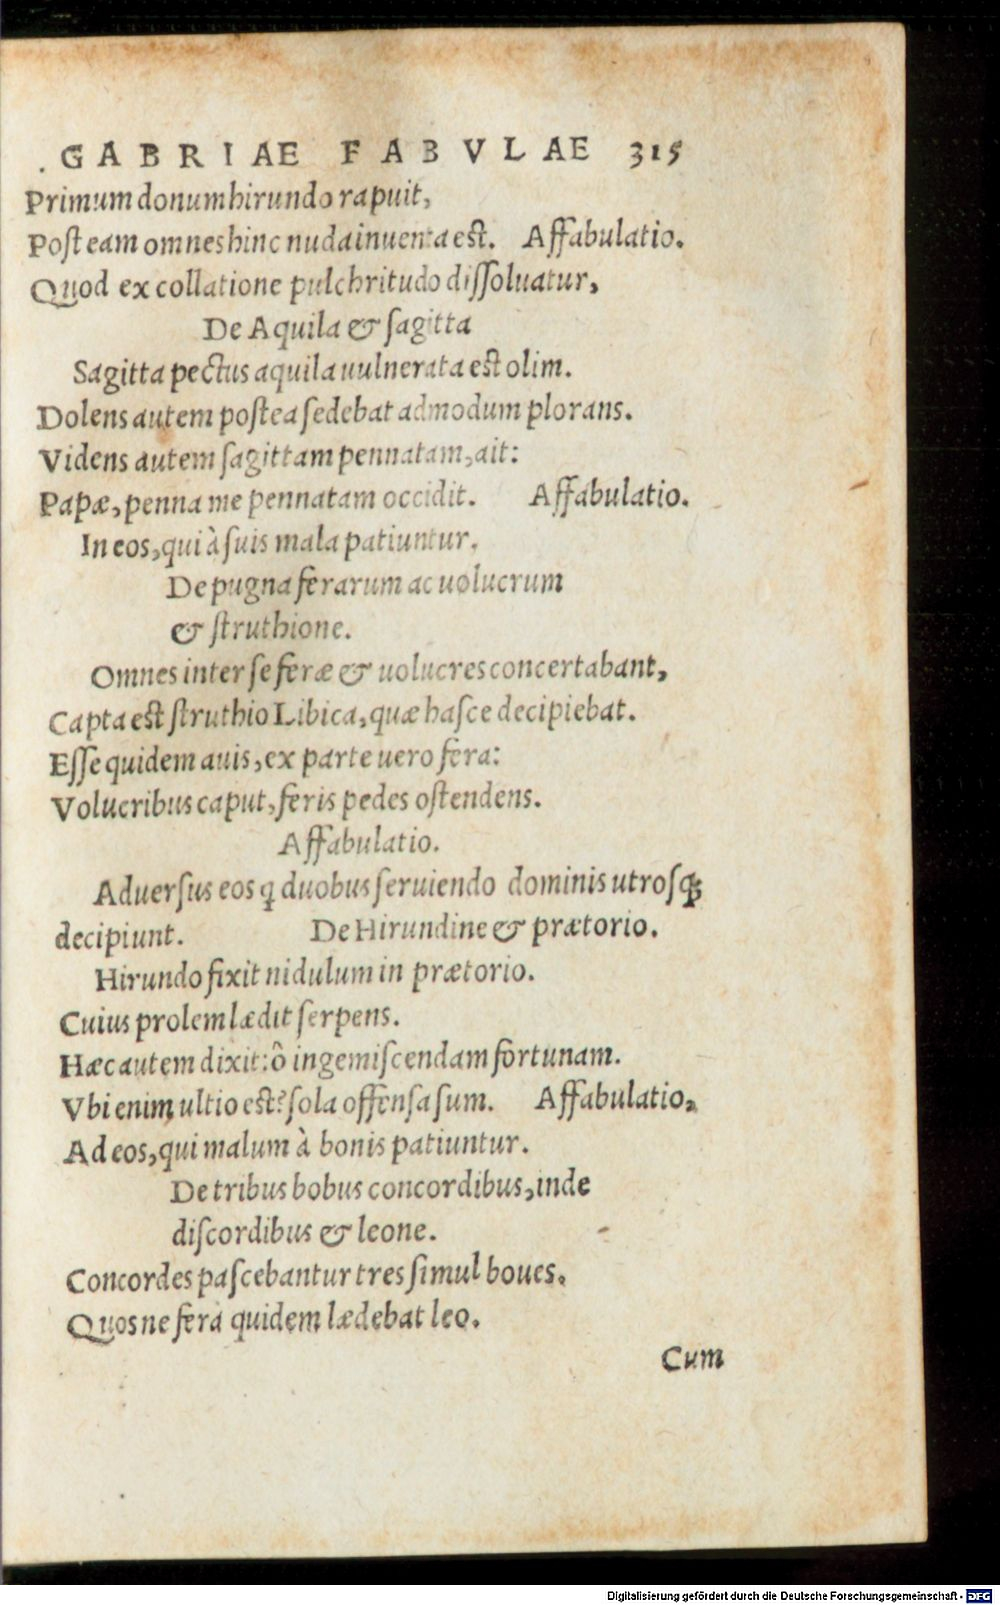 GABRIAE FABVLAE 315
Primum donum hirundo rapuit,
Post eam omnes hinc nuda inuenta est. Affabulatio.
Quod ex collatione pulchritudo dissoluatur,
De Aquila & sagitta
Sagitta pectus aquila uulnerata est olim.
Dolens autem postea sedebat admodum plorans.
Videns autem sagittam pennatam, ait:
Papæ, penna me pennatam occidit. Affabulatio.
In eos, qui à suis mala patiuntur.
De pugna ferarum ac uolucrum
& struthione.
Omnes inter se feræ & uolucres concertabant,
Capta est struthio Libica, quæ hasce decipiebat.
Esse quidem auis, ex parte uero fera:
Volucribus caput, feris pedes ostendens.
Affabulatio.
Aduersus eos q duobus seruiendo dominis utrosq;
decipiunt. De Hirundine & prætorio.
Hirundo fixit nidulum in prætorio.
Cuius prolem lædit serpens.
Hæc autem dixit: ô ingemiscendam fortunam.
Vbi enim ultio est? sola offensa sum. Affabulatio.
Ad eos, qui malum à bonis patiuntur.
De tribus bobus concordibus, inde
discordibus & leone.
Concordes pascebantur tres simul boues.
Quos ne fera quidem lædebat leo.
Cum
Digitalisierung gefördert durch die Deutsche Forschungsgemeinschaft - DFG